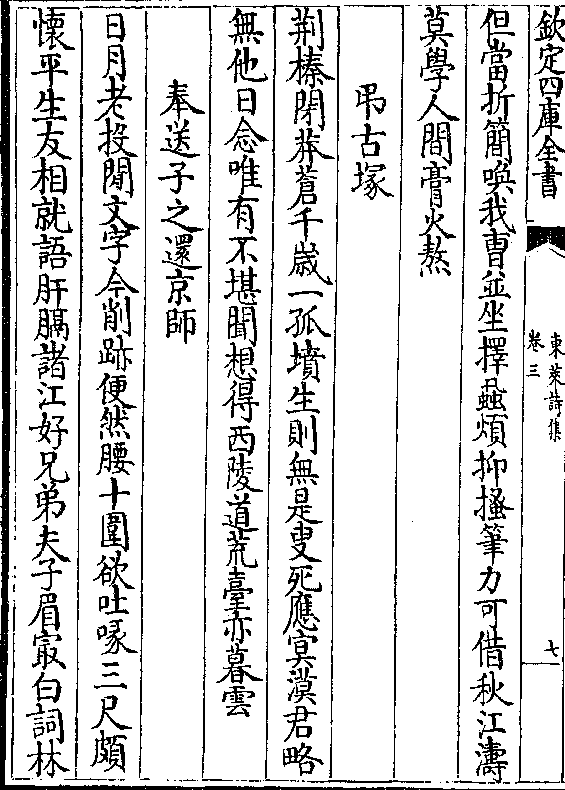 欽定四庫全書
東萊詩集
卷三
七
但當折簡喚我曹並坐擇蝨煩抑搔筆力可借秋江濤
莫學人間膏火熬
弔古塚
荆榛閉莽蒼千歲一孤墳生則無是叟死應冥漠君略
無他日念唯有不堪聞想得西陵道荒臺亦暮雲
奉送子之還京師
日月老投閒文字令削跡便然腰十圍欲吐喙三尺頗
懷平生友相就語肝膈諸江好兄弟夫子眉㝡白詞林